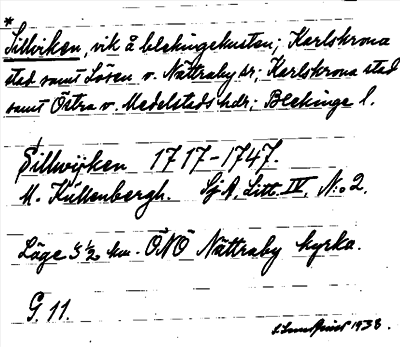 *
Sillviken, vik å blekingekusten; Karlskrona
stad samt Lösen o. Nättraby sr; Karlskrona stad
samt Östra o. Medelstads hdr; Blekinge l.
Sillwijken 1717-1747.
M. Küllenbergh. SjA, Litt. IV, N:o 2.
Läge 3 1/2 km. ÖNÖ Nättraby kyrka.
G. 11.
1938.